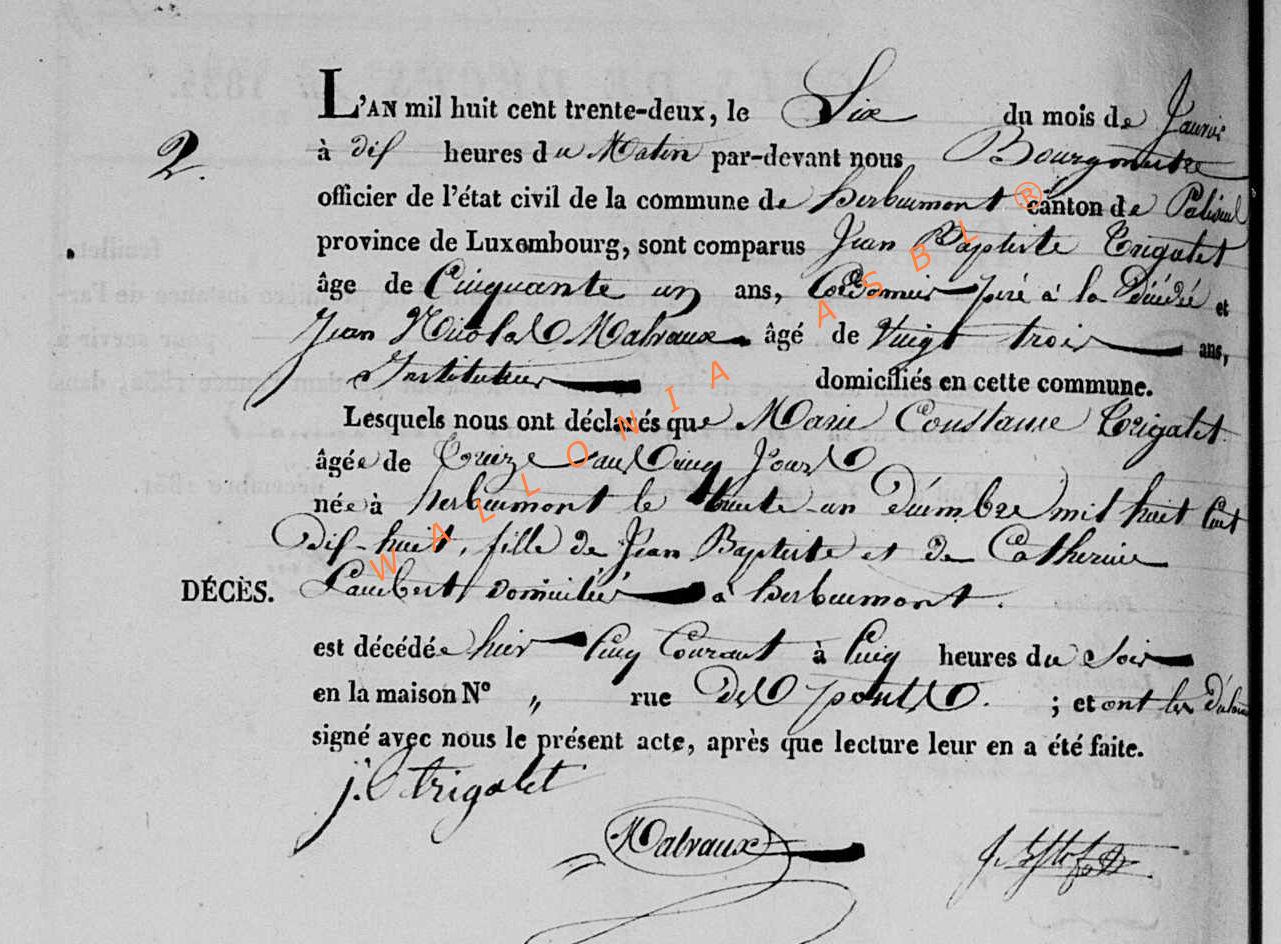 L'AN mil huit cent trente-deux, le Six du mois de Janvier
2. à dix heures du Matin par-devant nous Bourgmestre
officier de l'état civil de la commune de herbeumont canton de Paliseul
province de Luxembourg, sont comparus Jean Baptiste Trigalet
âge de Cinquante un ans, Cordonnier père à la Décédée et
Jean Nicolas Malvaux âgé de Vingt trois ans,
Instituteur domiciliés en cette commune.
Lesquels nous ont déclarés que Marie Constance Trigalet
âgée de Treize ans Cinq Jours
née à herbeumont le trente-un Décembre mil huit Cent
dix-huit, fille de Jean Baptiste et de Catherine
DÉCÈS. Lambert domiciliés à herbeumont.
est décédée hier Cinq Courant à Cinq heures du Soir
en la maison N° „ rue des ponts. ; et ont les
signé avec nous le présent acte, après que lecture leur en a été faite.
j. trigalet
Malvaux
WALLONIA ASBL ®